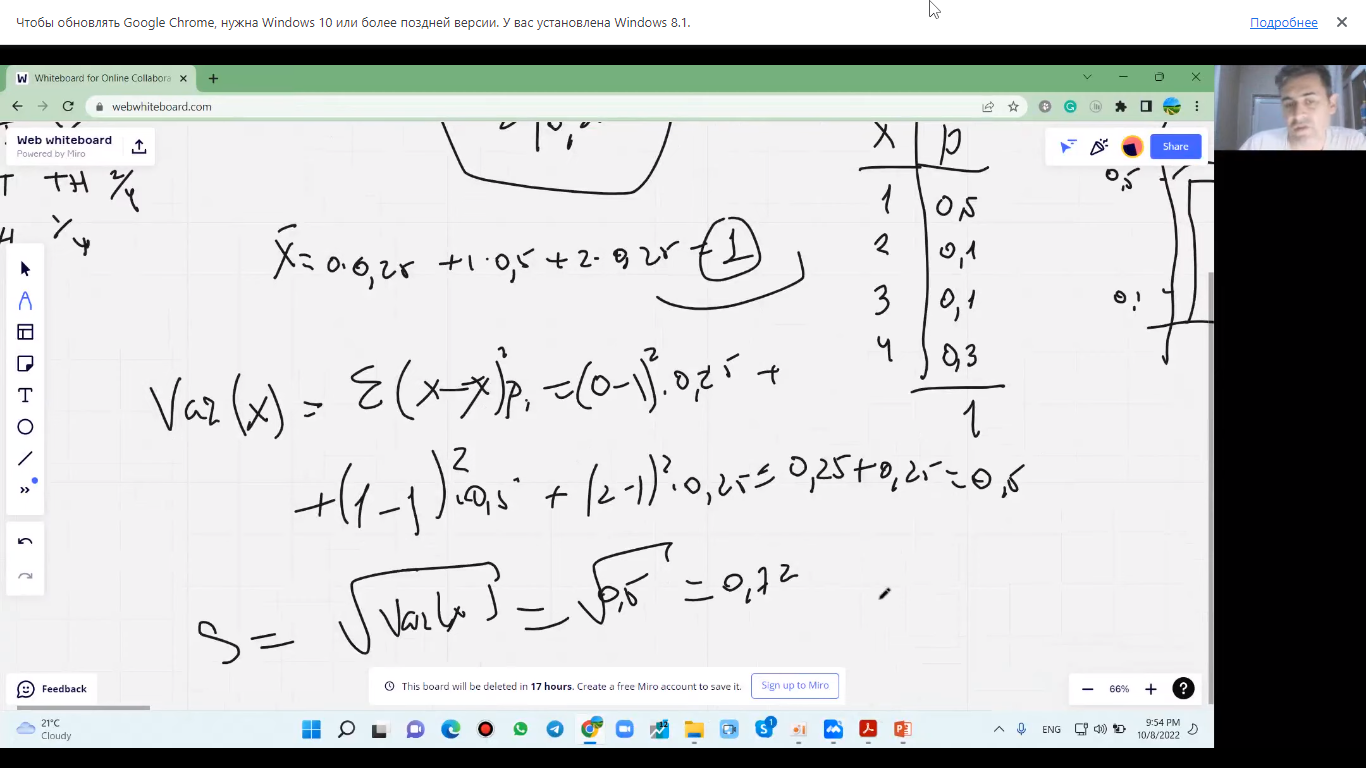 Чтобы обновлять Google Chrome, нужна Windows 10 или более поздней версии. У вас установлена Windows 8.1.
Подробнее
Whiteboard for Online Collabora
webwhiteboard.com
Web whiteboard
Powered by Miro
Share
T TH 2/4
H 1/4
x̄ = 0·0,25 + 1·0,5 + 2·0,25 = 1
X p
1 0,5
2 0,1
3 0,1
4 0,3
1
0,5
0,1
Var(x) = Σ(x-x̄)²pᵢ = (0-1)²·0,25 +
+(1-1)²·0,5 + (2-1)²·0,25 = 0,25+0,25=0,5
S = √Var(x) = √0,5 = 0,72
Feedback
This board will be deleted in 17 hours. Create a free Miro account to save it.
Sign up to Miro
66%
21°C
Cloudy
ENG
9:54 PM
10/8/2022